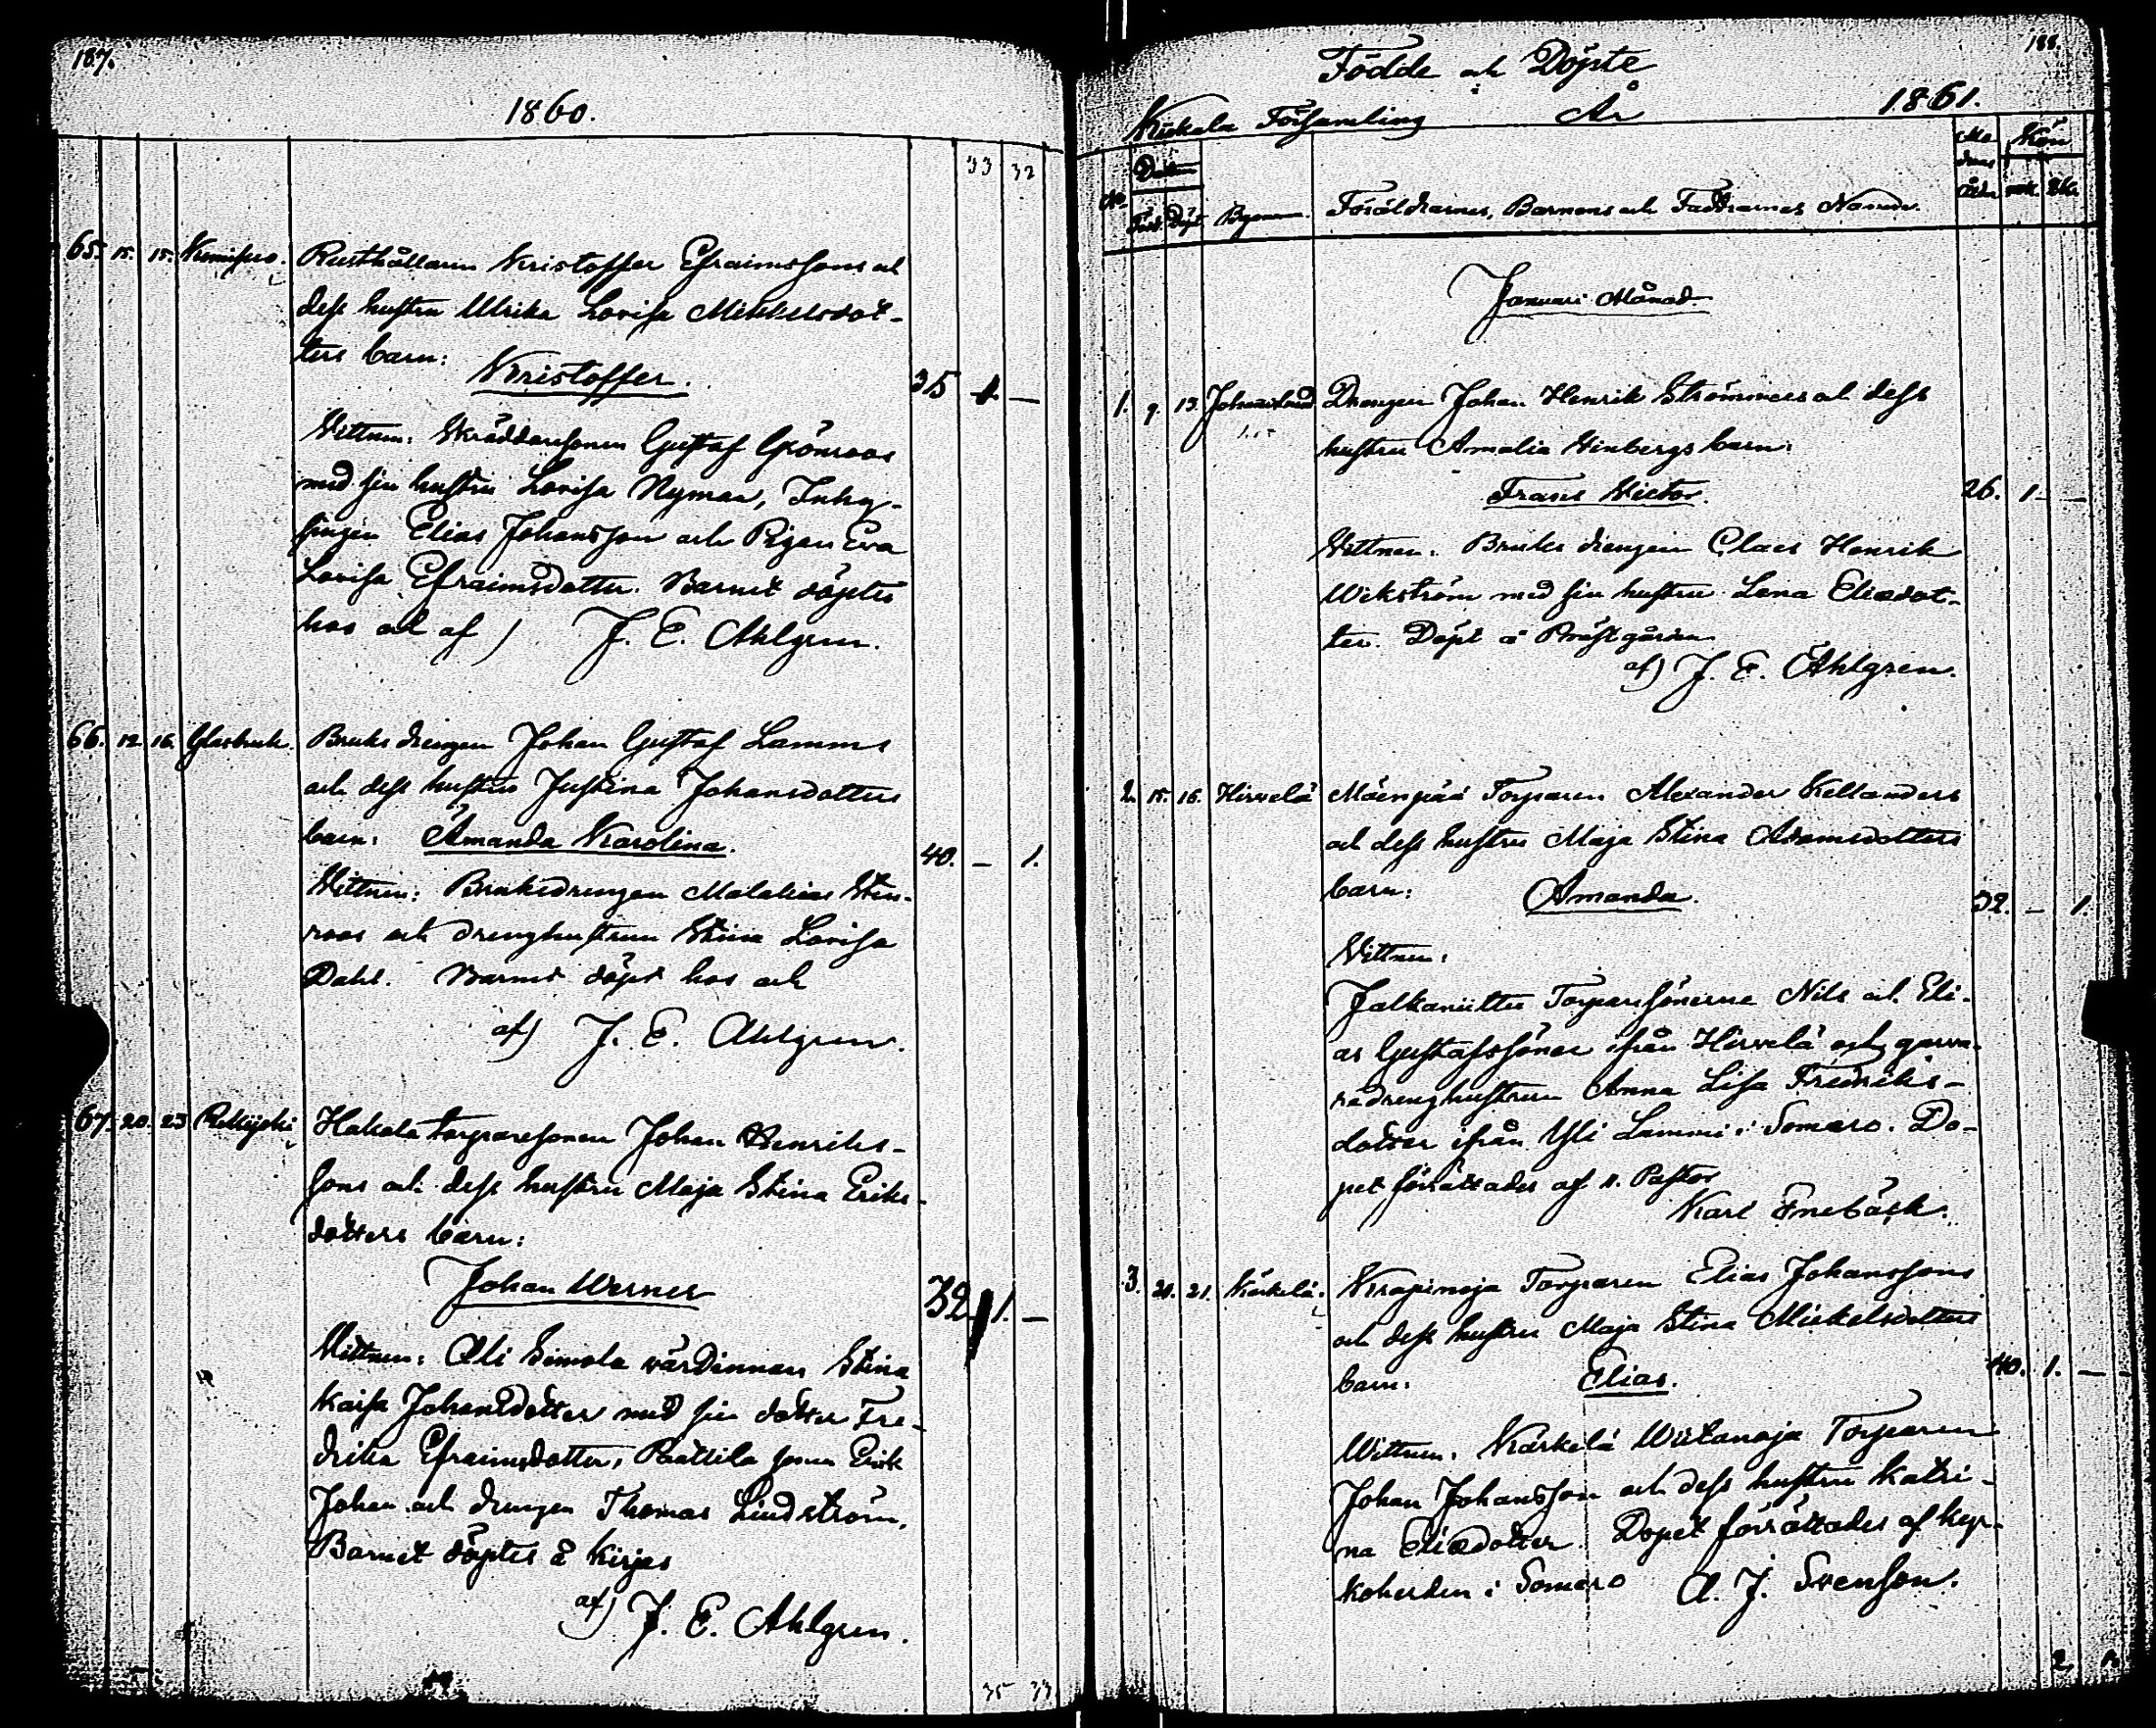 187.
1860.
33 32
65. 15. 15. Rusthållaren Kristoffer Efraimssons och
dess hustru Ulrika Lovisa Mikkelsdot-
ters barn:
Kristoffer.
35 1. —
Vittnen: Skräddaresonen Gustaf Grönroos
med sin hustru Lovisa Nyman, Inhy-
singen Elias Johansson och Pigan Eva
Lovisa Efraimsdotter. Barnet döptes
hos och af) J. E. Ahlgren.
66. 12. 16. Glasbruk. Bruks drengen Johan Gustaf Lamms
och dess hustrus Justina Johansdotters
barn: Amanda Karolina.
40. — 1.
Vittnen: Bruksdrengen Malakias Sten-
roos och drenghustrun Stina Lovisa
Dahl. Barnet döpt hos och
af) J. E. Ahlgren.
67. 20. 23 Rekijoki Hakala torparesonen Johan Henriks-
sons och dess hustru Maja Stina Eriks-
dotters barn:
Johan Werner
32 1. —
Vittnen: Ali Simola värdinnan Stina
Kajsa Johansdotter med sin dotter Fre-
drika Efraimsdotter, Rättilä sonen Erik
Johan och drengen Thomas Lindström.
Barnet döptes å Kirjas
af) J. E. Ahlgren.
35 33
188.
Födde och Döpte
Kiikala Församling År 1861.
No. Datum Mo-
dens
Ålder Kön
Född. Döpt Byarne. Föräldrarnes, Barnens och Faddrarnes Namn. mk. qk.
Januari Månad
1. 9. 13. Johanislund Drengen Johan Henrik Strömmers och dess
hustru Amalia Vinbergs barn:
Frans Victor.
26. 1. —
Vittnen: Bruks drengen Claes Henrik
Wikström med sin hustru Lena Eliædot-
ter. Döpt å Prästgården
af) J. E. Ahlgren.
2. 15. 16. Hirvelä Mäenpää Torparen Alexander Kellanders
och dess hustru Maja Stina Adamsdotters
barn: Amanda.
32. — 1.
Vittnen:
Jalkaniittu Torparesönerne Nils och Eli-
as Gustafssöner ifrån Hirvelä och garva-
redrenghustrun Anna Lisa Fredriks-
dotter ifrån Yli Lammi i Somero. Do-
pet förrättades af v. Pastor
Karl Enebäck.
3. 20. 21. Kärkelä. Krapinoja Torparen Elias Johanssons
och dess hustru Maja Stina Mickelsdotters
barn: Elias.
40. 1. —
Wittnen: Kärkelä Wiitanoja Torparen
Johan Johansson och dess hustru Katri-
na Eliædotter. Dopet förrättades af kyr-
koherden i Somero A. J. Svenson.
2